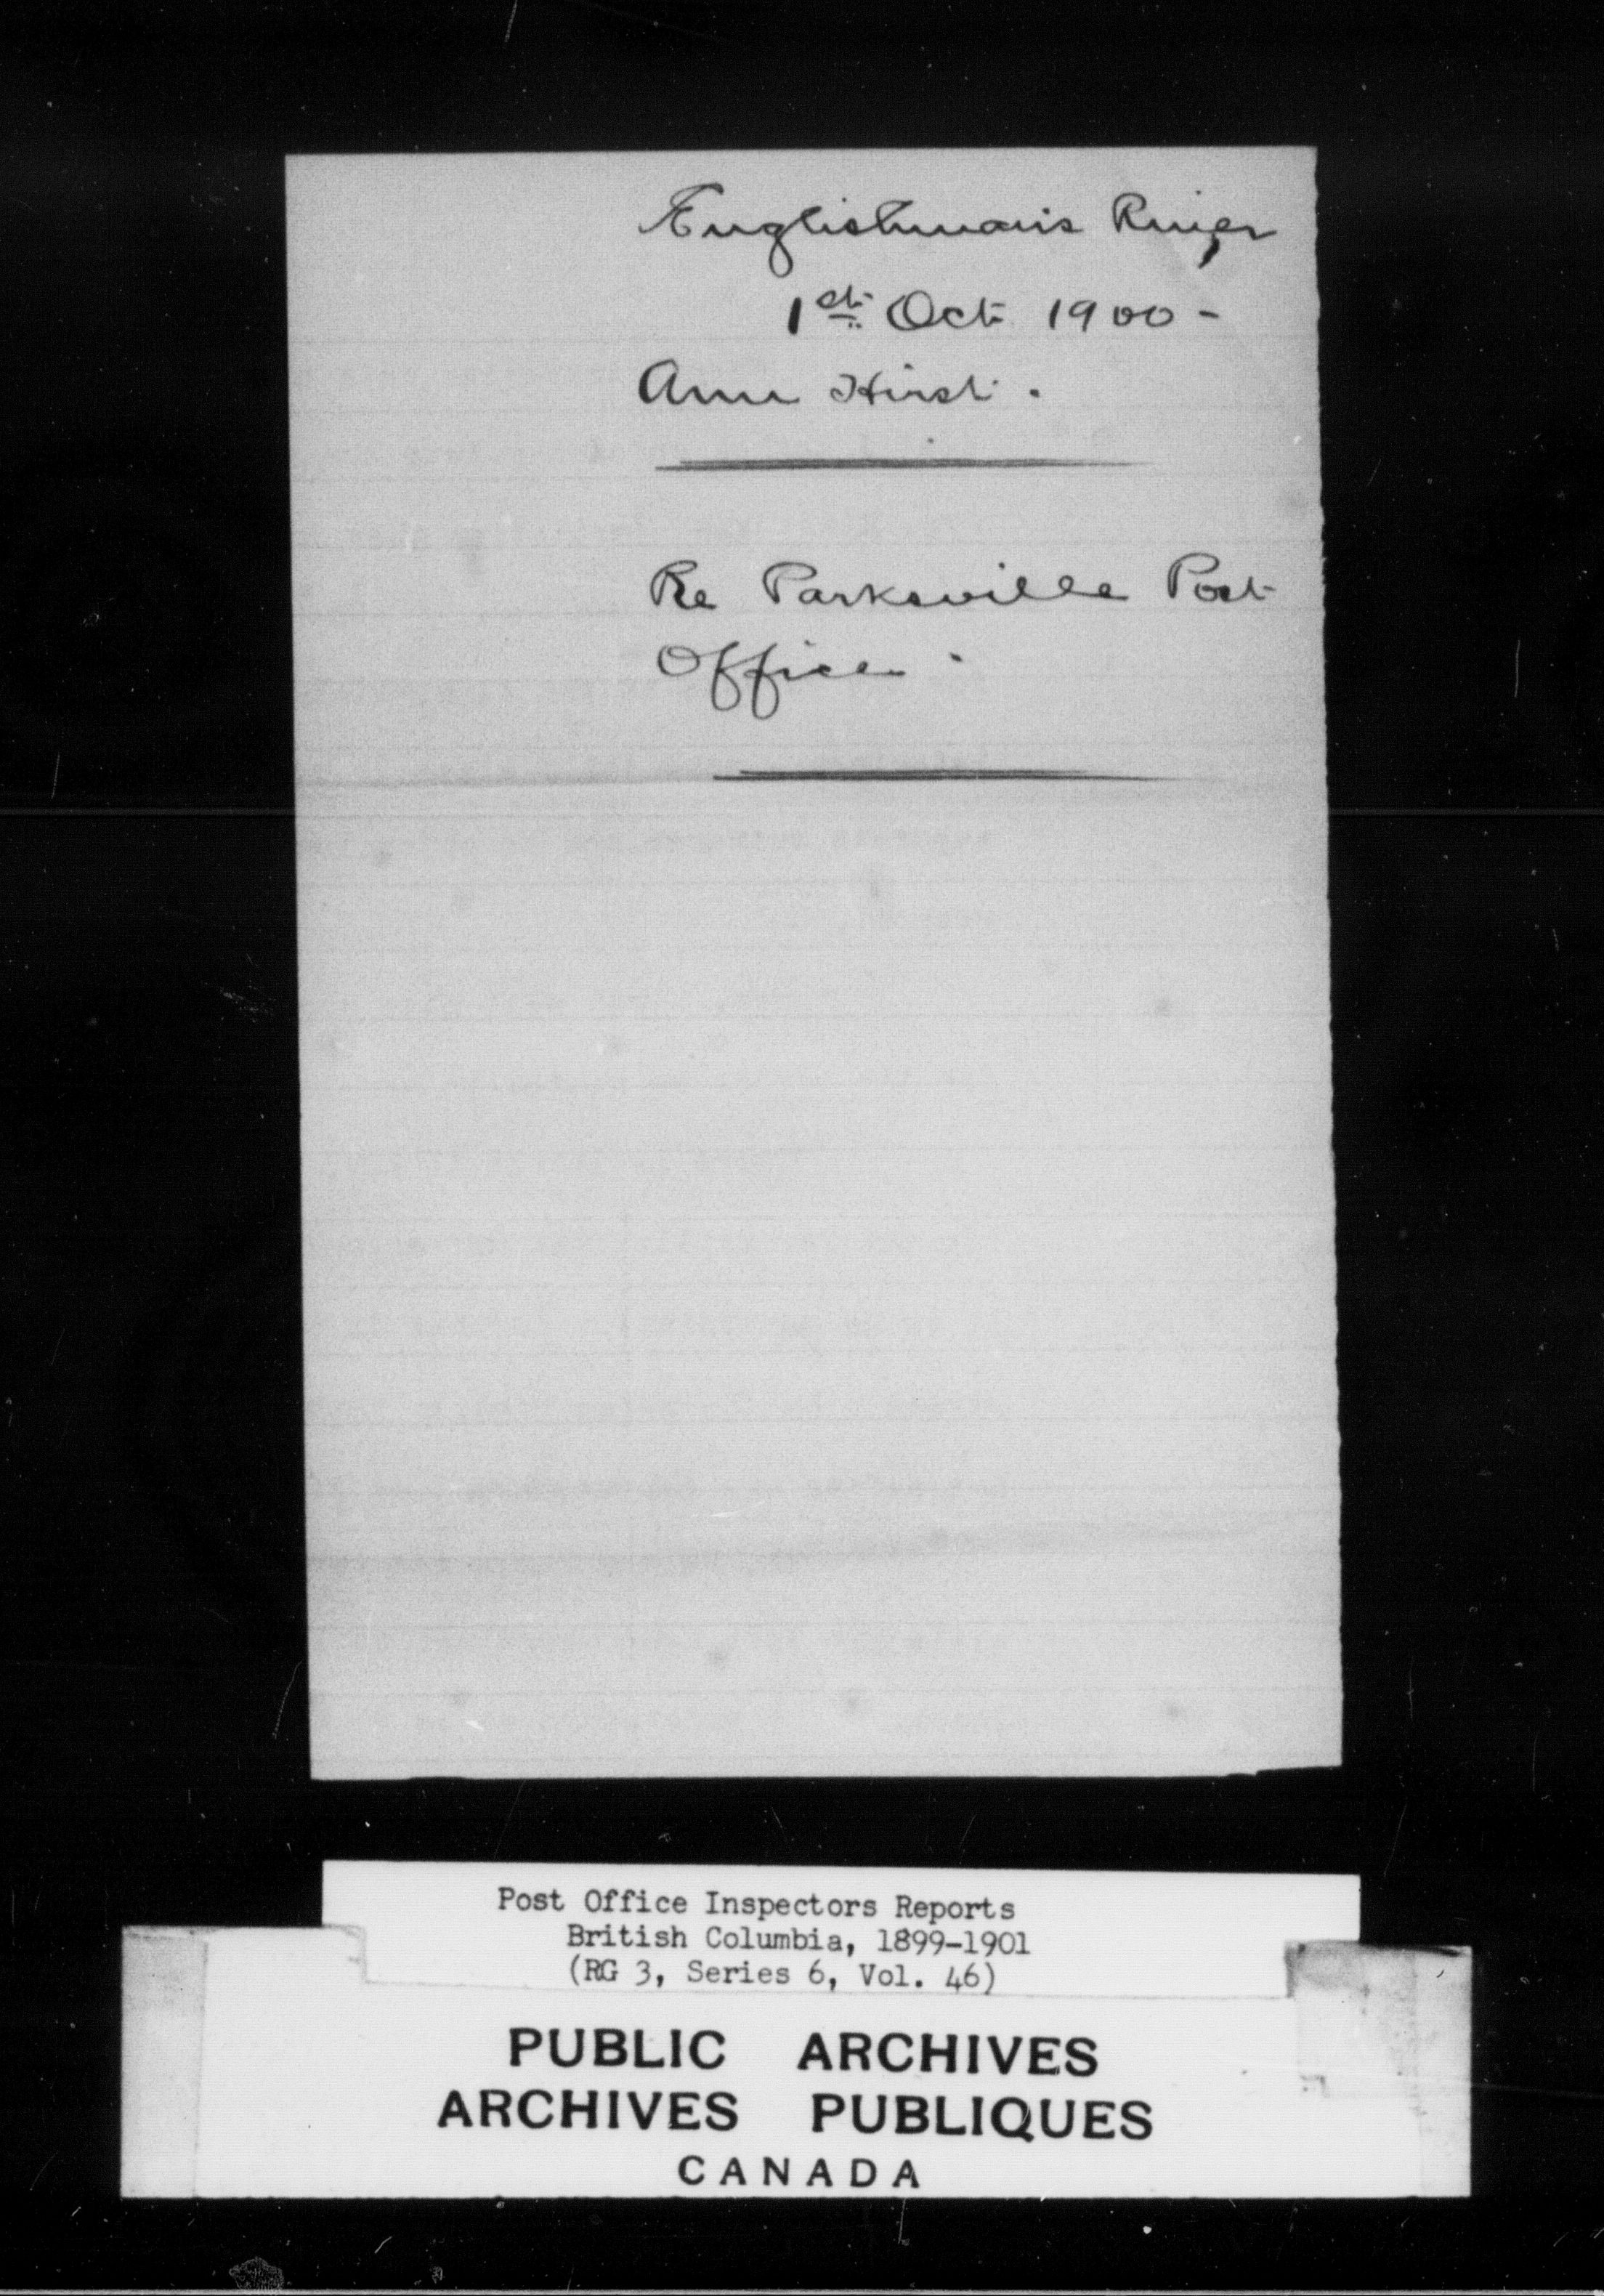 Englishman's River,
1st Oct 1900 -
Ann Hirst.
Re Parksville Post
Office.
Post Office Inspectors Reports
British Columbia, 1899-1901
(RG 3, Series 6, Vol. 46)
PUBLIC ARCHIVES
ARCHIVES PUBLIQUES
CANADA